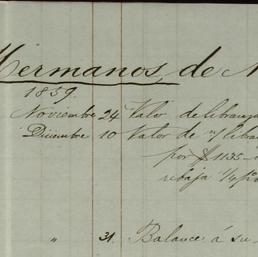 Hermanos, de
1859.
Noviembre 24 Valor de libranza
Diciembre 10 Valor de s/ libran
por $ 1135-
rebaja 1/4 p%
" 31. Balance á su